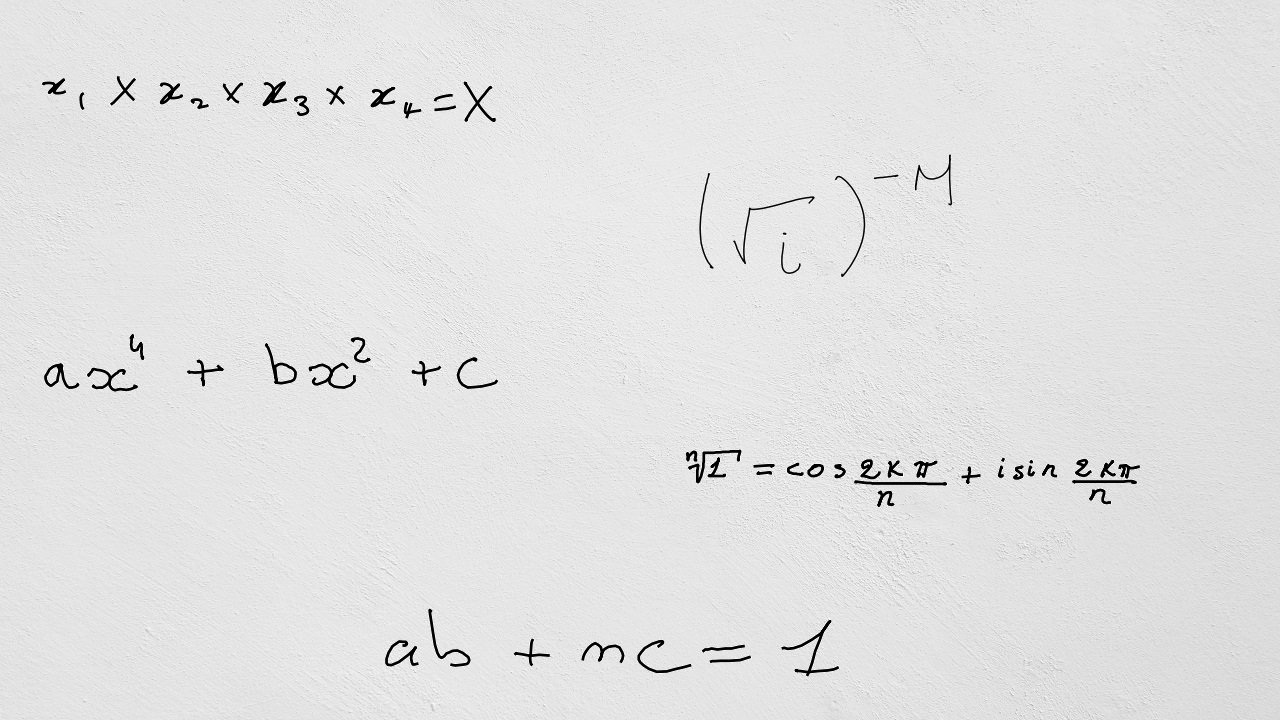 x₁ × x₂ × x₃ × x₄ = X
(√i)^{-M}
ax⁴ + bx² + c
ⁿ√1 = cos 2kπ/n + i sin 2kπ/n
ab + nc = 1